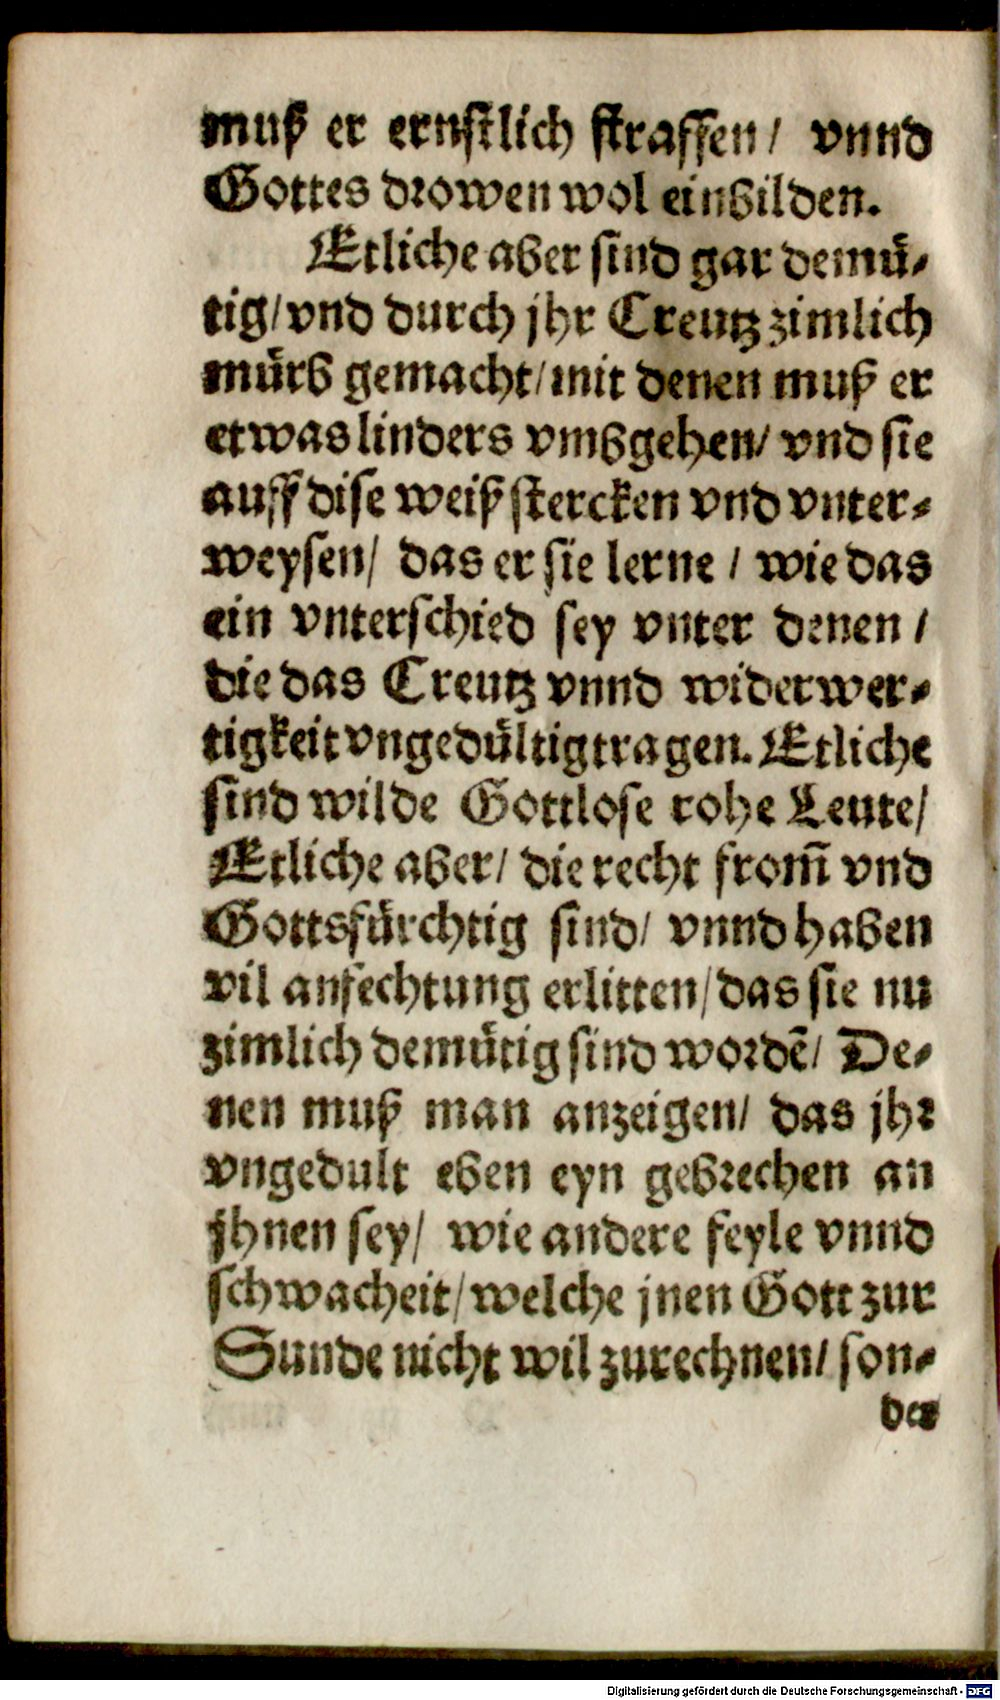 muß er ernſtlich ſtraffen/ vnnd
Gottes drowen wol einbilden.
Etliche aber ſind gar demuͤ⸗
tig/ vnd durch jhr Creutz zimlich
muͤrb gemacht/ mit denen muß er
etwas linders vmbgehen/ vnd ſie
auff diſe weiß ſtercken vnd vnter⸗
weyſen/ das er ſie lerne / wie das
ein vnterſchied ſey vnter denen /
die das Creutz vnnd widerwer⸗
tigkeit vngeduͤltig tragen. Etliche
ſind wilde Gottloſe rohe Leute/
Etliche aber/ die recht from̃ vnd
Gottsfuͤrchtig ſind/ vnnd haben
vil anfechtung erlitten/ das ſie nu
zimlich demuͤtig ſind wordẽ/ De⸗
nen muß man anzeigen/ das jhr
vngedult eben eyn gebrechen an
jhnen ſey/ wie andere feyle vnnd
ſchwacheit/ welche jnen Gott zur
Sunde nicht wil zurechnen/ ſon⸗
der
Digitalisierung gefördert durch die Deutsche Forschungsgemeinschaft - DFG